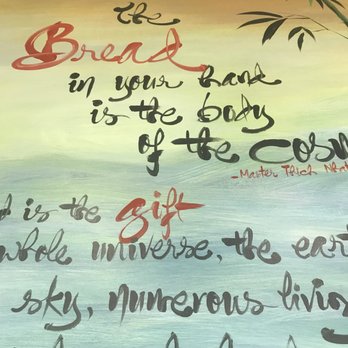 the
Bread
in your hand
is the body
of the cosm
-Master Thich Nhat
d is the gift
whole universe, the eart
sky, numerous living